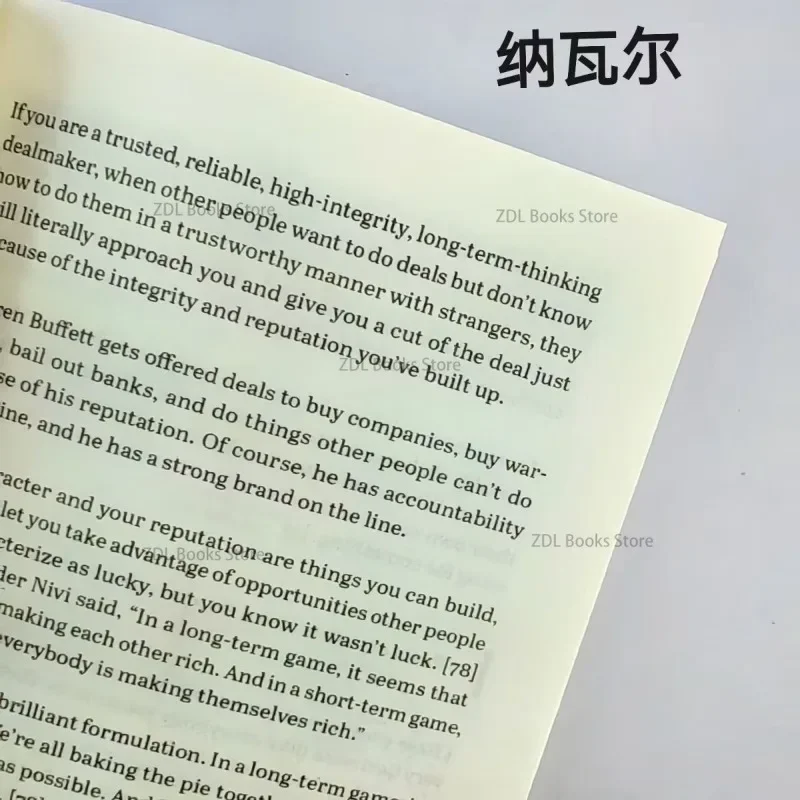 纳瓦尔
If you are a trusted, reliable, high-integrity, long-term-thinking
dealmaker, when other people want to do deals but don't know
how to do them in a trustworthy manner with strangers, they
literally approach you and give you a cut of the deal just
of the integrity and reputation you've built up.
Buffett gets offered deals to buy companies, buy war-
bail out banks, and do things other people can't do
of his reputation. Of course, he has accountability
and he has a strong brand on the line.
and your reputation are things you can build,
let you take advantage of opportunities other people
as lucky, but you know it wasn't luck. [78]
Nivi said, "In a long-term game, it seems that
making each other rich. And in a short-term game,
everybody is making themselves rich."
brilliant formulation. In a long-term
We're all baking the pie
as possible.
ZDL Books Store
ZDL Books Store
ZDL Books Store
ZDL Books Store
ZDL Books Store